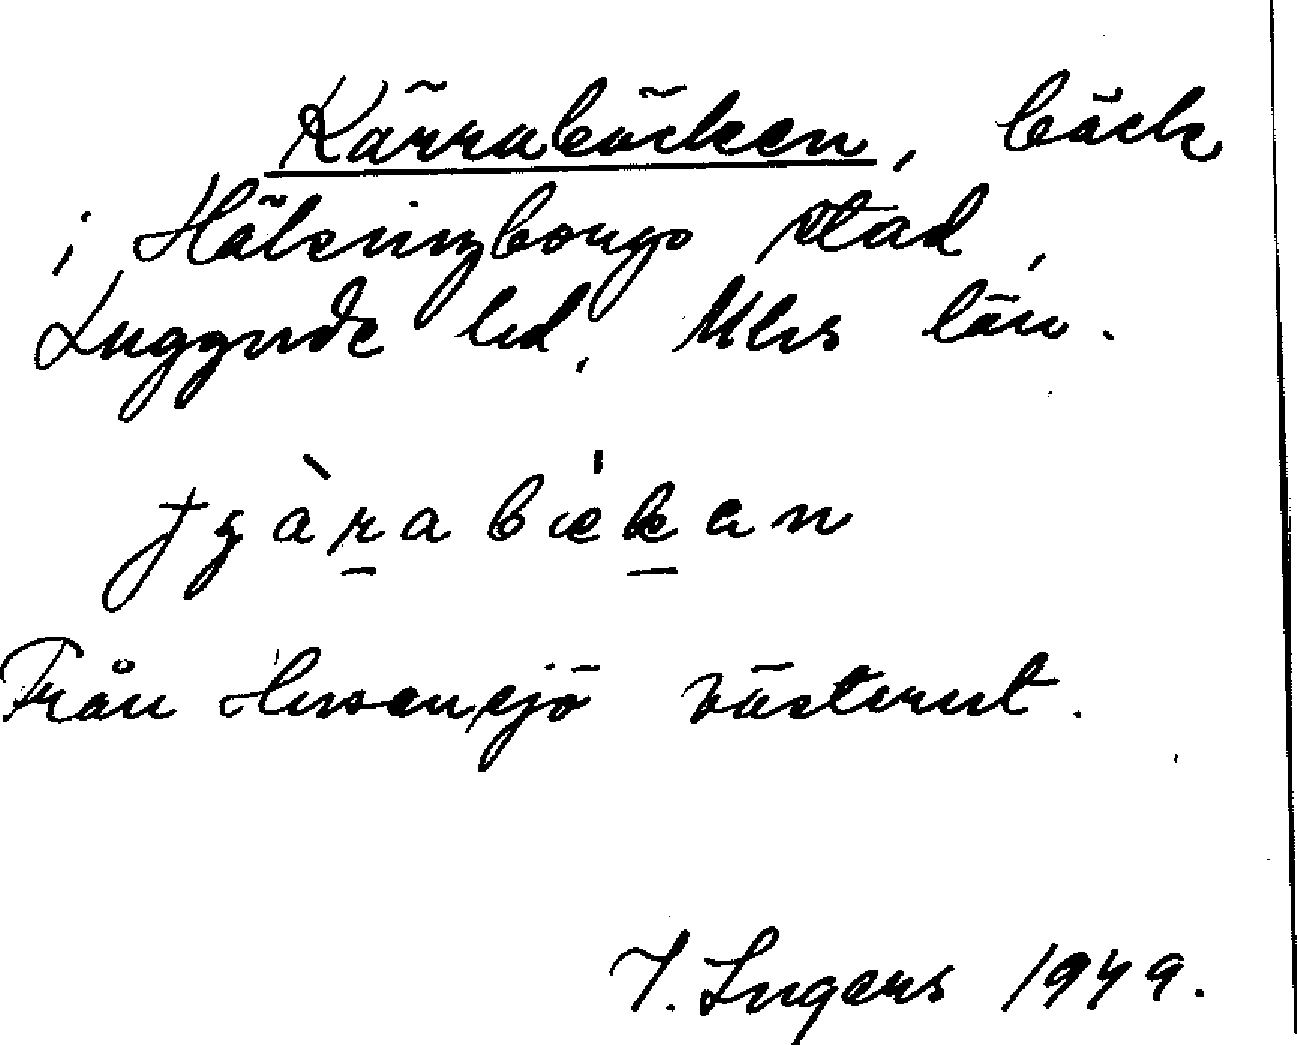 Kärrabäcken, bäck
i Hälsingborgs stad,
Luggude hd, Mlhs län.
Från Husensjö västerut.
I. Ingers 1949.